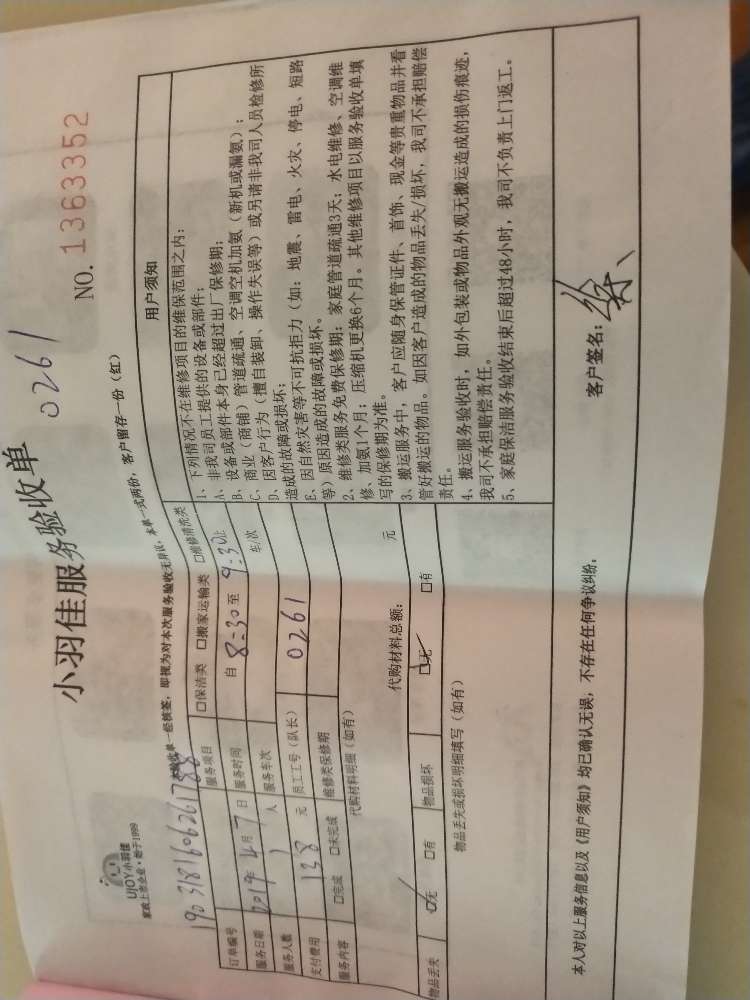 小羽佳服务验收单 0261
UJOY小羽佳
家政上市企业·始于1999
NO. 1363352
本验收单一经核签，即视为对本次服务验收无异议，本单一式两份，客户留存一份（红）
订单编号 190318160626178
服务项目 □保洁类 □搬家运输类 □维修清洗类
服务日期 2019年4月7日 服务时间 自 8:30 至 9:30 止
服务人数 1 人 服务车次 车/次
支付费用 138 元 员工工号（队长） 0261
服务内容 □完成 □未完成 维修类保修期
代购材料明细（如有） 代购材料总额： 元
物品丢失 □无 □有 物品损坏 □无 □有
物品丢失或损坏明细填写（如有）
用户须知
1、下列情况不在维修项目的维保范围之内：
A、非我司员工提供的设备或部件；
B、设备或部件本身已经超过出厂保修期；
C、商业（商铺）管道疏通、空调空机加氨（新机或漏氨）；
D、因客户行为（擅自装卸、操作失误等）或另请非我司人员检修所
造成的故障或损坏；
E、因自然灾害等不可抗拒力（如：地震、雷电、火灾、停电、短路
等）原因造成的故障或损坏。
2、维修类服务免费保修期：家庭管道疏通3天；水电维修、空调维
修、加氨1个月；压缩机更换6个月。其他维修项目以服务验收单填
写的保修期为准。
3、搬运服务中，客户应随身保管证件、首饰、现金等贵重物品并看
管好搬运的物品。如因客户造成的物品丢失/损坏，我司不承担赔偿
责任。
4、搬运服务验收时，如外包装或物品外观无搬运造成的损伤痕迹，
我司不承担赔偿责任。
5、家庭保洁服务验收结束后超过48小时，我司不负责上门返工。
本人对以上服务信息以及《用户须知》均已确认无误，不存在任何争议纠纷。
客户签名：